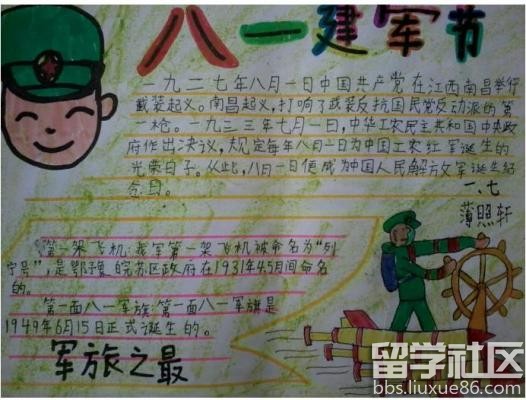 八一建军节
一九二七年八月一日中国共产党在江西南昌举行
武装起义。南昌起义，打响了武装反抗国民党反动派的第
一枪。一九三三年七月一日，中华工农民主共和国中央政
府作出决议，规定每年八月一日为中国工农红军诞生的
光荣日子。从此，八月一日便成为中国人民解放军诞生纪
念日。
一、七
薄照轩
第一架飞机：我军第一架飞机被命名为“列
宁号”，是鄂豫皖苏区政府在1931年4.5月间命名
的。
第一面八一军旗：第一面八一军旗是
1949年6月15日正式诞生的。
军旅之最
留学社区
bbs.liuxue86.com